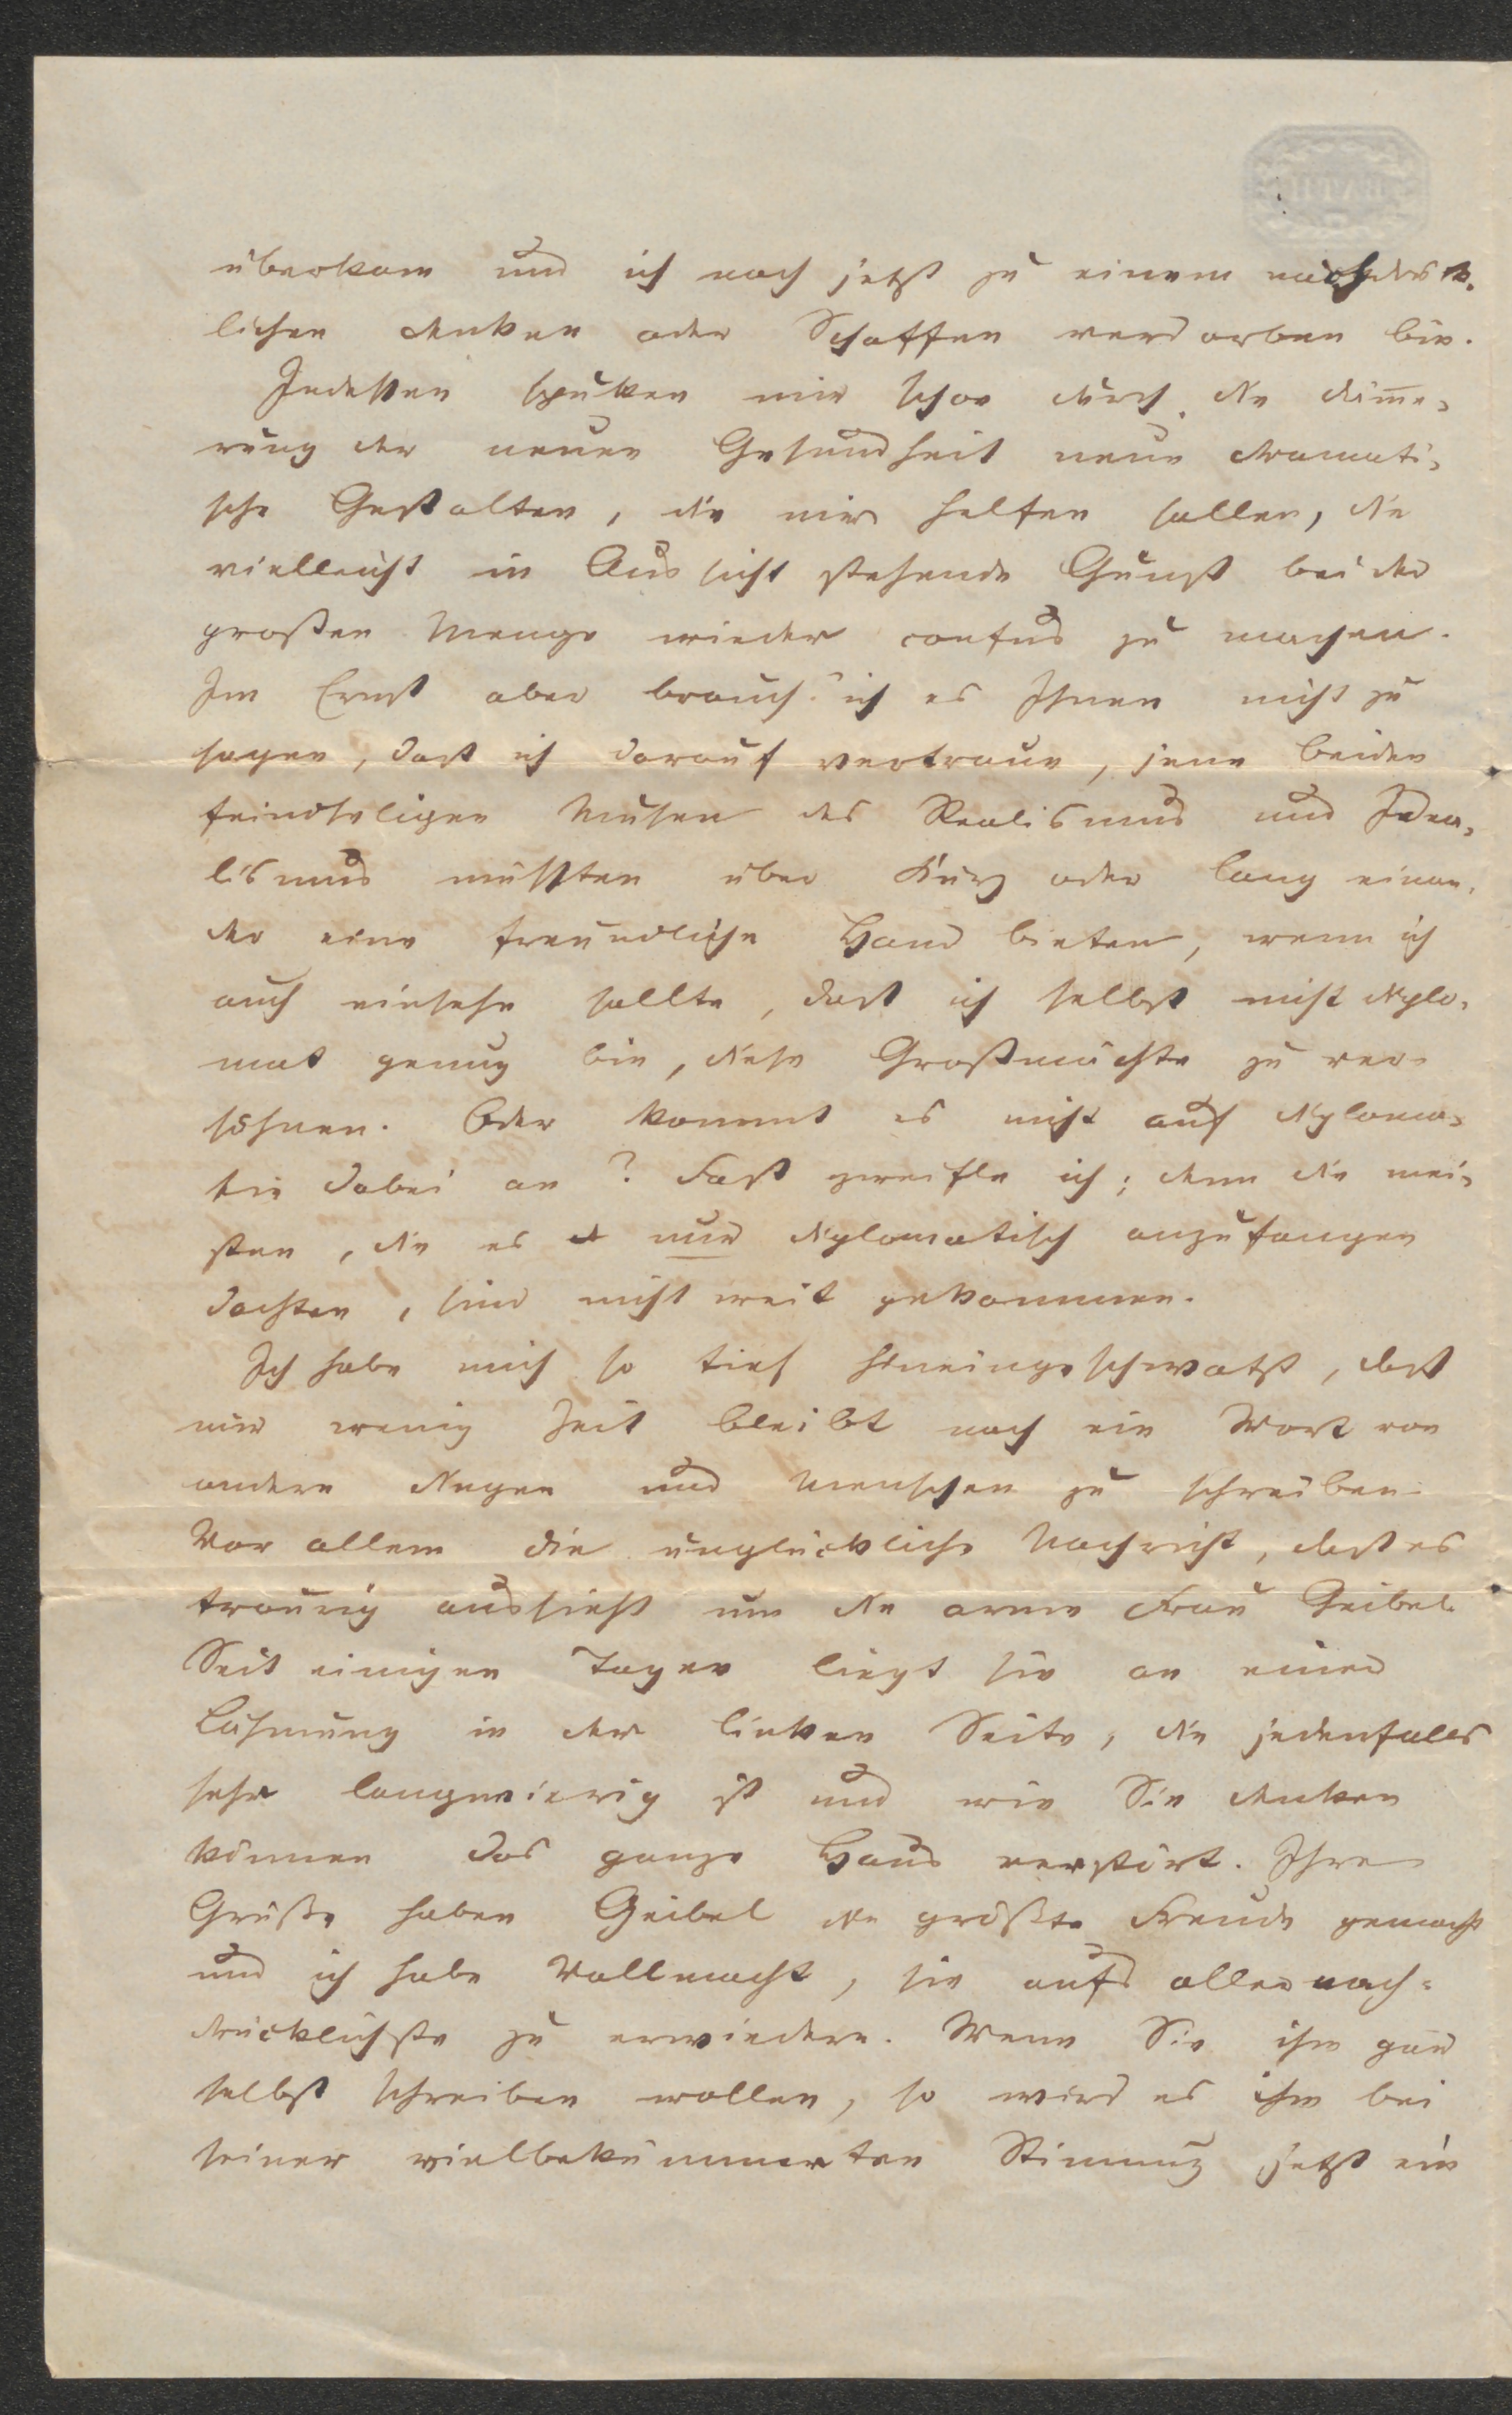 überkam und ich noch jetzt zu einem
lichen Denken oder Schaffen verdorben bin.
Indessen spuken mir schon durch die Däm̄e-
rung der neuen Gesundheit neue dramati-
sche Gestalten, die mir helfen sollen, die
vielleicht in Aussicht stehende Gunst bei der
großen Menge wieder confus zu machen.
Im Ernst aber brauch' ich es Ihnen nicht zu
sagen, daß ich darauf vertraue, jene beiden
feindseligen Musen des Realismus und Idea-
lismus müssten über Kurz oder lang einan-
der eine freundliche Hand bieten, wenn ich
auch einsehe sollte, daß ich selbst nicht Diplo-
mat genug bin, diese Großmächte zu ver-
söhnen. Oder kommt es nicht auf Diploma-
tie dabei an? Fast zweifle ich; denn die mei-
sten, die es nur diplomatisch anzufangen
dachten, sind nicht weit gekommen.
Ich habe mich so tief hineingeschwatzt, daß
mir wenig Zeit bleibt noch ein Wort von
andern Dingen und Menschen zu schreiben.
Vor allem die unglückliche Nachricht, daß es
traurig aussieht um die arme Frau Geibel.
Seit einigen Tagen liegt sie an einer
Lähmung in der linken Seite, die jedenfalls
sehr langwierig ist und wie Sie denken
können das ganze Haus verstört. Ihre
Grüße haben Geibel die größte Freude gemacht
und ich habe Vollmacht, sie aufs allernach-
drücklichste zu erwiedern. Wenn Sie ihm gar
selbst schreiben wollen, so wird es ihm bei
seiner vielbekümmerten Stimmung jetzt ein